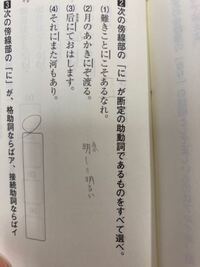 2 次の傍線部の「に」が断定の助動詞であるものをすべて選べ。
(1) 難きことにこそあるなれ。
(2) 月のあかきにぞ渡る。
(3) 后にておはします。
(4) それにまた河もあり。
明し=明るい
3 次の傍線部の「に」が、格助詞ならばア、接続助詞ならばイ